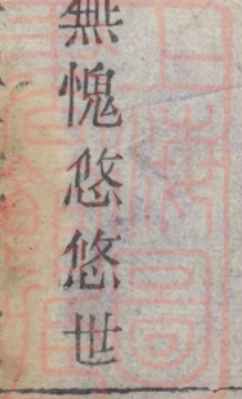 無愧悠悠世